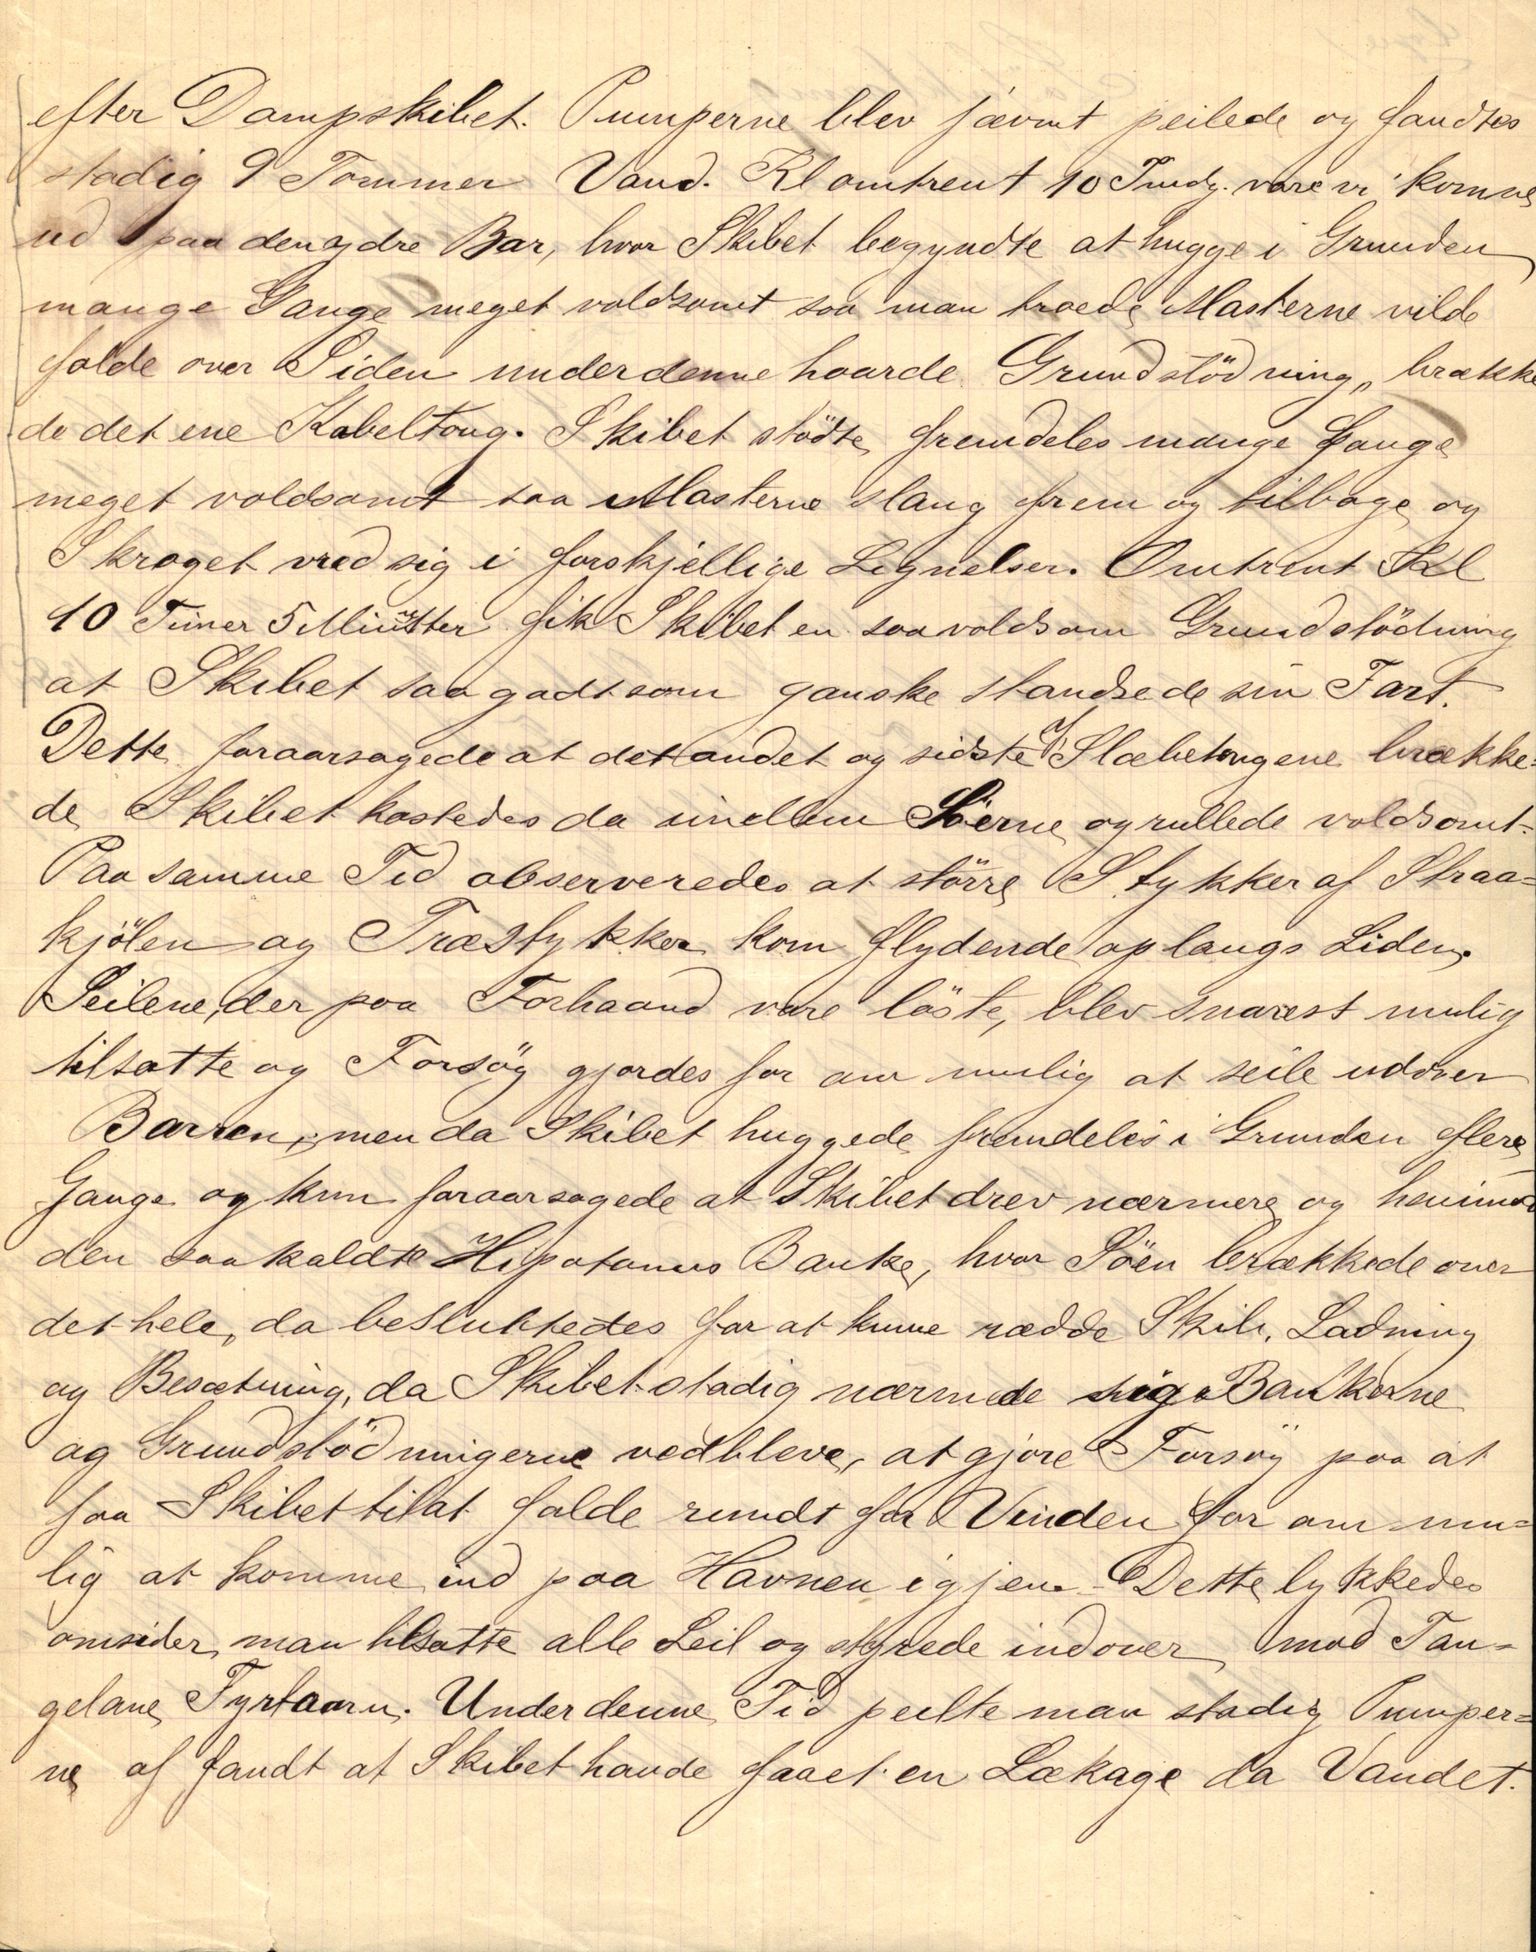 efter Dampskibet. Pumperne blev jævnt peilede og fandtes
stadig 9 Tommer Vand. Kl omtrent 10 Fmdg. vare vi komne
ud paa den ydre Bar, hvor Skibet begyndte at hugge i Grunden
mange Gange meget voldsomt saa man troede Masterne vilde
falde over Siden under denne haarde Grundstödning, brække
de det ene Kabeltoug. Skibet stödte fremdeles mange Gange
meget voldsomt saa Masterne slang frem og tilbage og
Skroget vred sig i forskjellige Lignelser. Omtrent Kl
10 Timer 5 Minutter fik Skibet en saa voldsom Grundstödning
at Skibet saa godt som ganske standsede sin Fart.
Dette foraarsagede at det andet og sidste af Slæbetougene brække=
de Skibet kastedes da imellem Söerne og rullede voldsomt=
Paa samme Tid observeredes at större Stykker af Straa=
kjölen og Træstykker kom flydende op langs Siden.
Seilene, der paa Forhaand vare löste, blev snarest mulig
tilsatte og Forsög gjordes for om mulig at seile udover
Barren, men da Skibet huggede fremdeles i Grunden flere
Gange og kun foraarsagede at Skibet drev nærmere og henimod
den saakaldte Hipotamus Banke, hvor Söen brækkede over
det hele, da besluttedes for at kunne rædde Skib, Ladning
og Besætning, da Skibet stadig nærmede sig Bankerne
og Grundstödningerne vedbleve, at gjöre Forsög paa at
faa Skibet til at falde rundt for Vinden for om mu=
lig at komme ind paa Havnen igjen. Dette lykkedes
omsider, man tilsatte alle Seil og styrede indover mod Tan=
gelane Fyrtaarn. Under denne Tid peilte man stadig Pumper=
ne af fandt at Skibet havde faaet en Lækage da Vandet.